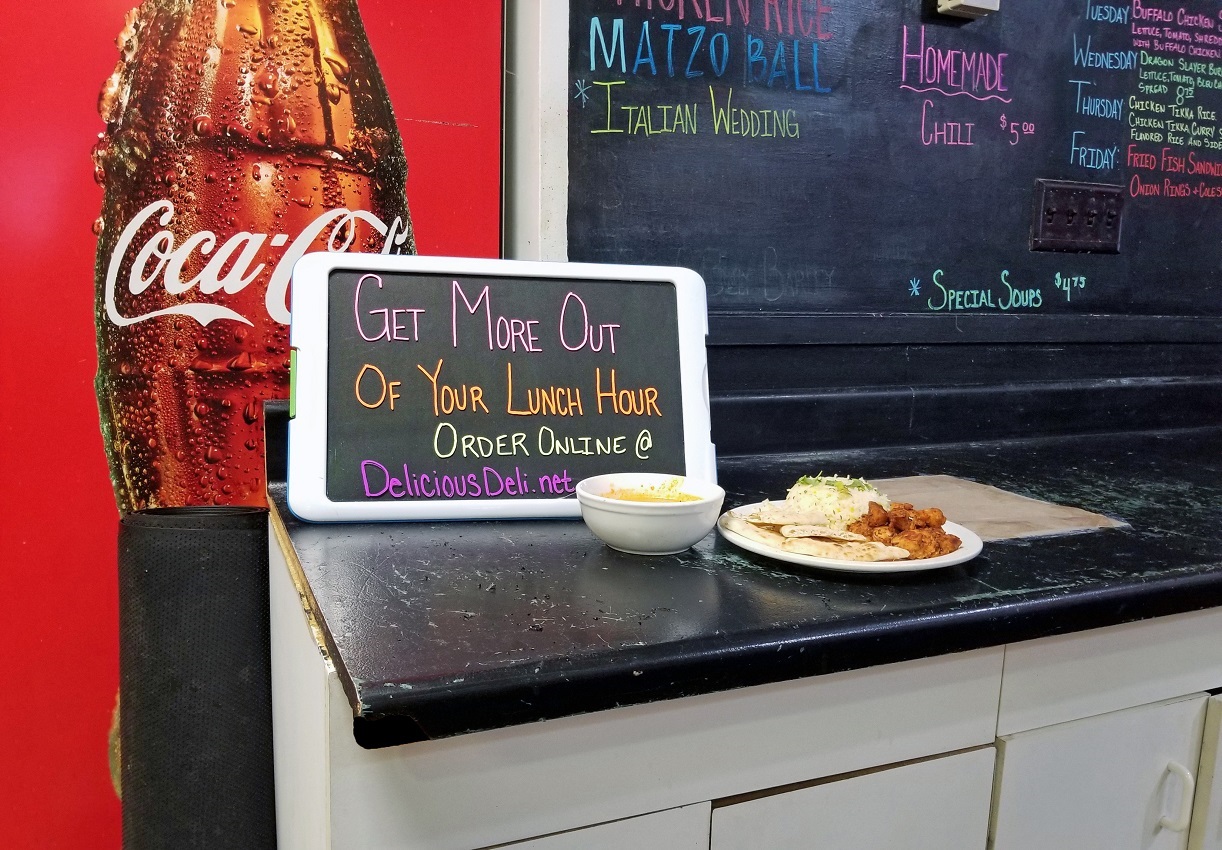 Coca-Col
CHICKEN RICE
MATZO BALL
* ITALIAN WEDDING
HOMEMADE
CHILI $5.00
* SPECIAL SOUPS $4.75
TUESDAY: BUFFALO CHICKEN
LETTUCE, TOMATO, SHREDD
WITH BUFFALO CHICKEN
WEDNESDAY DRAGON SLAYER BUR
LETTUCE, TOMATO, BLEU CH
SPREAD 8.75
THURSDAY CHICKEN TIKKA RICE
CHICKEN TIKKA CURRY
FLAVORED RICE AND SIDE
FRIDAY: FRIED FISH SANDWI
ONION RINGS + COLES
GET MORE OUT
OF YOUR LUNCH HOUR
ORDER ONLINE @
DELICIOUSDELI.net